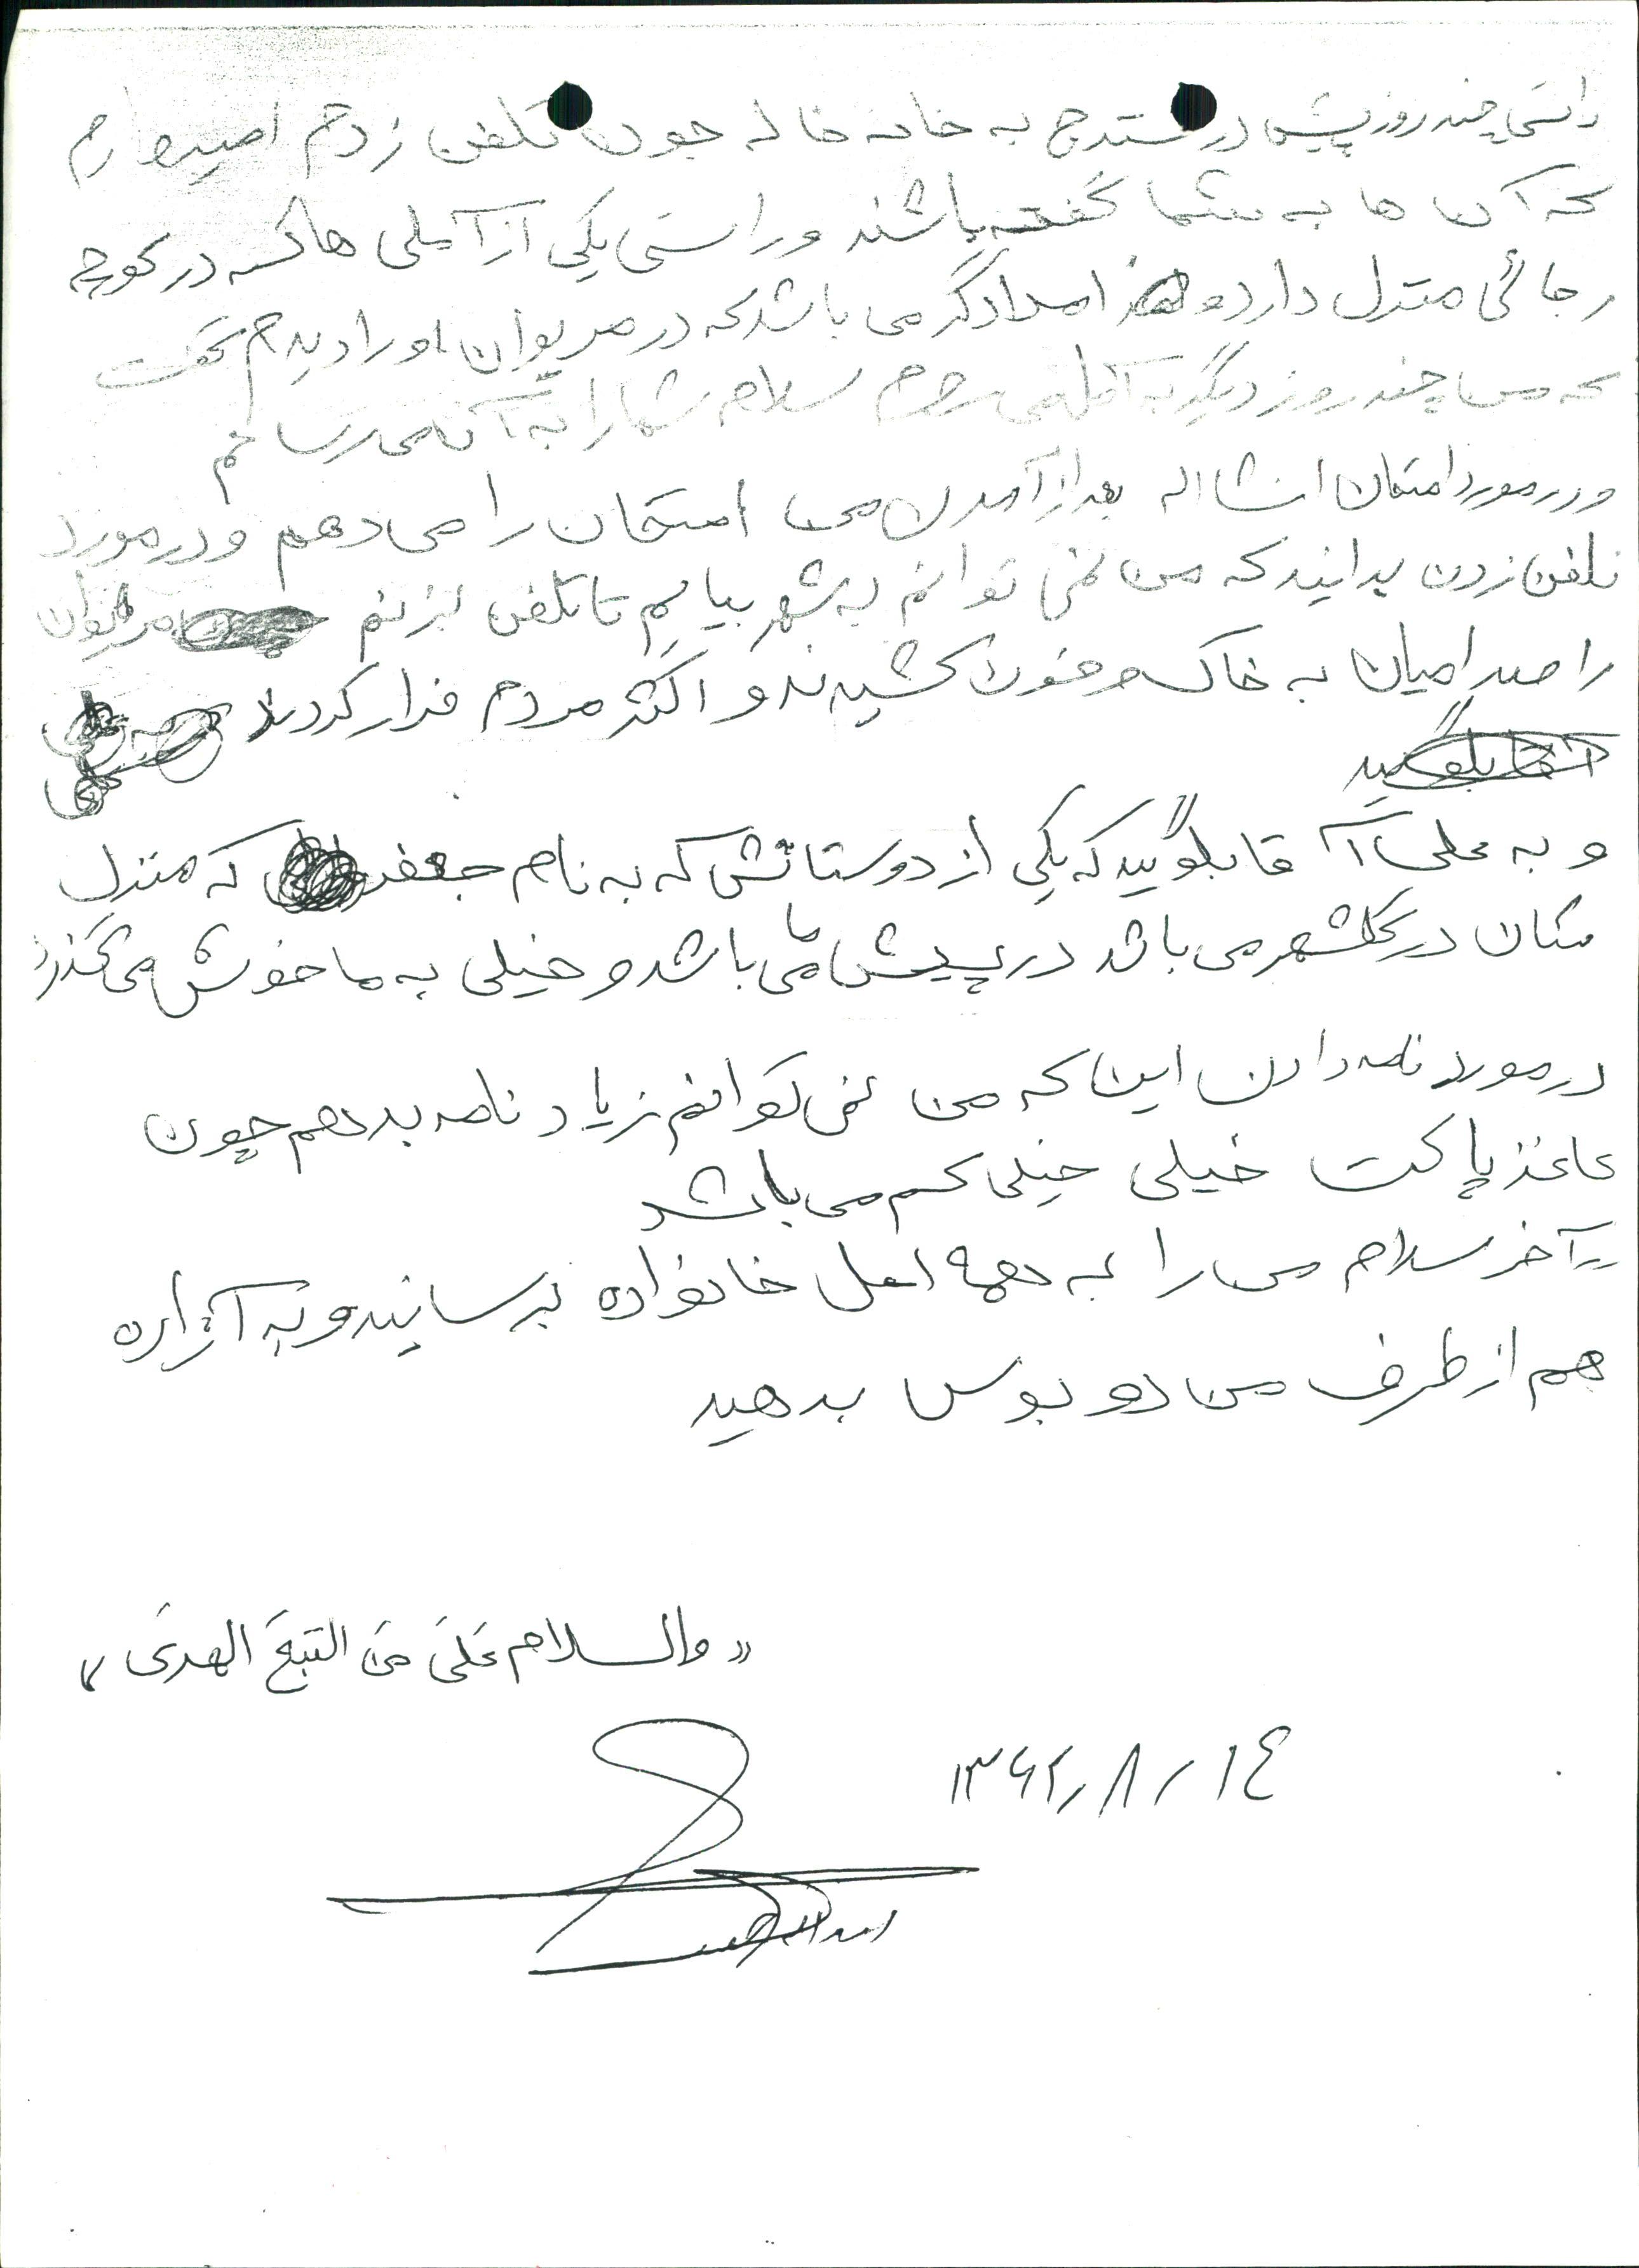 راستی چند روز پیش در سنندج به خانه خاله جون تلفن زدم امیدوارم
که آن ها به شما گفته باشند و راستی یکی از آملی ها که در کوچه
رجائی منزل دارد و امدادگر می باشد که در مریوان او را دیدم گفت
که من چند روز دیگر به آمل می روم سلام شما را به آن می رسانم
و در مورد امتحان انشااله بعد از آمدن من امتحان را می دهم و در مورد
تلفن زدن بدانید که من نمی توانم به شهر بیایم تا تلفن بزنم مریوان
را صدامیان به خاک و خون کشیدند و اکثر مردم فرار کردند
و به علی آقا بگویید که یکی از دوستانش که به نام جعفر که منزل
شان در گلشهر می باشد در پیش ما می باشد و خیلی به ما خوش می گذرد
در مورد نامه دادن این که من نمی توانم زیاد نامه بدهم چون
کاغذ پاکت خیلی خیلی کم می باشد
در آخر سلام من را به همه اهل خانواده برسانید و به آزاده
هم از طرف من دو بوس بدهید
«والسلام عَلی مَن التبعَ الهدی»
۱۳۶۲/۸/۱٤